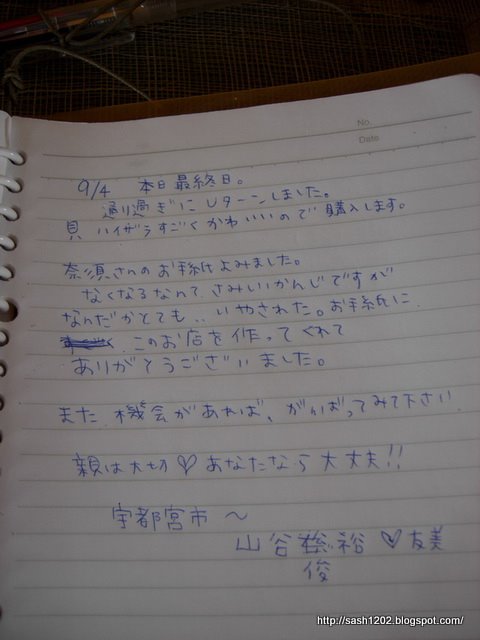 No.
Date
9/4 本日最終日。
通り過ぎにUターンしました。
貝 ハイザラすごくかわいいので購入します。
奈須さんのお手紙よみました。
なくなるなんてさみしいかんじですが
なんだかとても‥いやされた。お手紙に
このお店を作ってくれて
ありがとうございました。
また機会があれば、がんばってみて下さい
親は大切♡あなたなら大丈夫!!
宇都宮市〜
山谷 裕♡友美
俊
http://sash1202.blogspot.com/